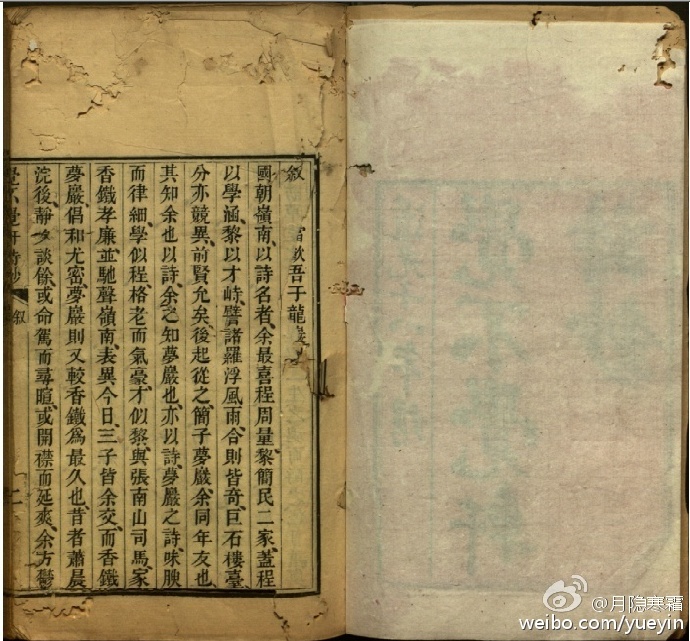 叙 吾于龍
國朝嶺南以詩名者、余最喜程周量黎簡民二家、蓋程
以學涵、黎以才峙、譬諸羅浮風雨、合則皆奇、巨石樓臺、
分亦競異、前賢允矣、後起從之、簡子夢巖、余同年友也、
其知余也以詩、余之知夢巖也、亦以詩、夢巖之詩、味腴
而律細、學似程、格老而氣豪、才似黎、與張南山司馬、家
香鐵孝廉、並馳聲嶺南、表異今日、三子皆余交、而香鐵
夢巖、倡和尤密、夢巖則又較香鐵爲最久也、昔者蕭晨
浣後、靜夕談餘、或命駕而尋暄、或開襟而延爽、余方鬱
叙
@月隐寒霜
weibo.com/yueyin